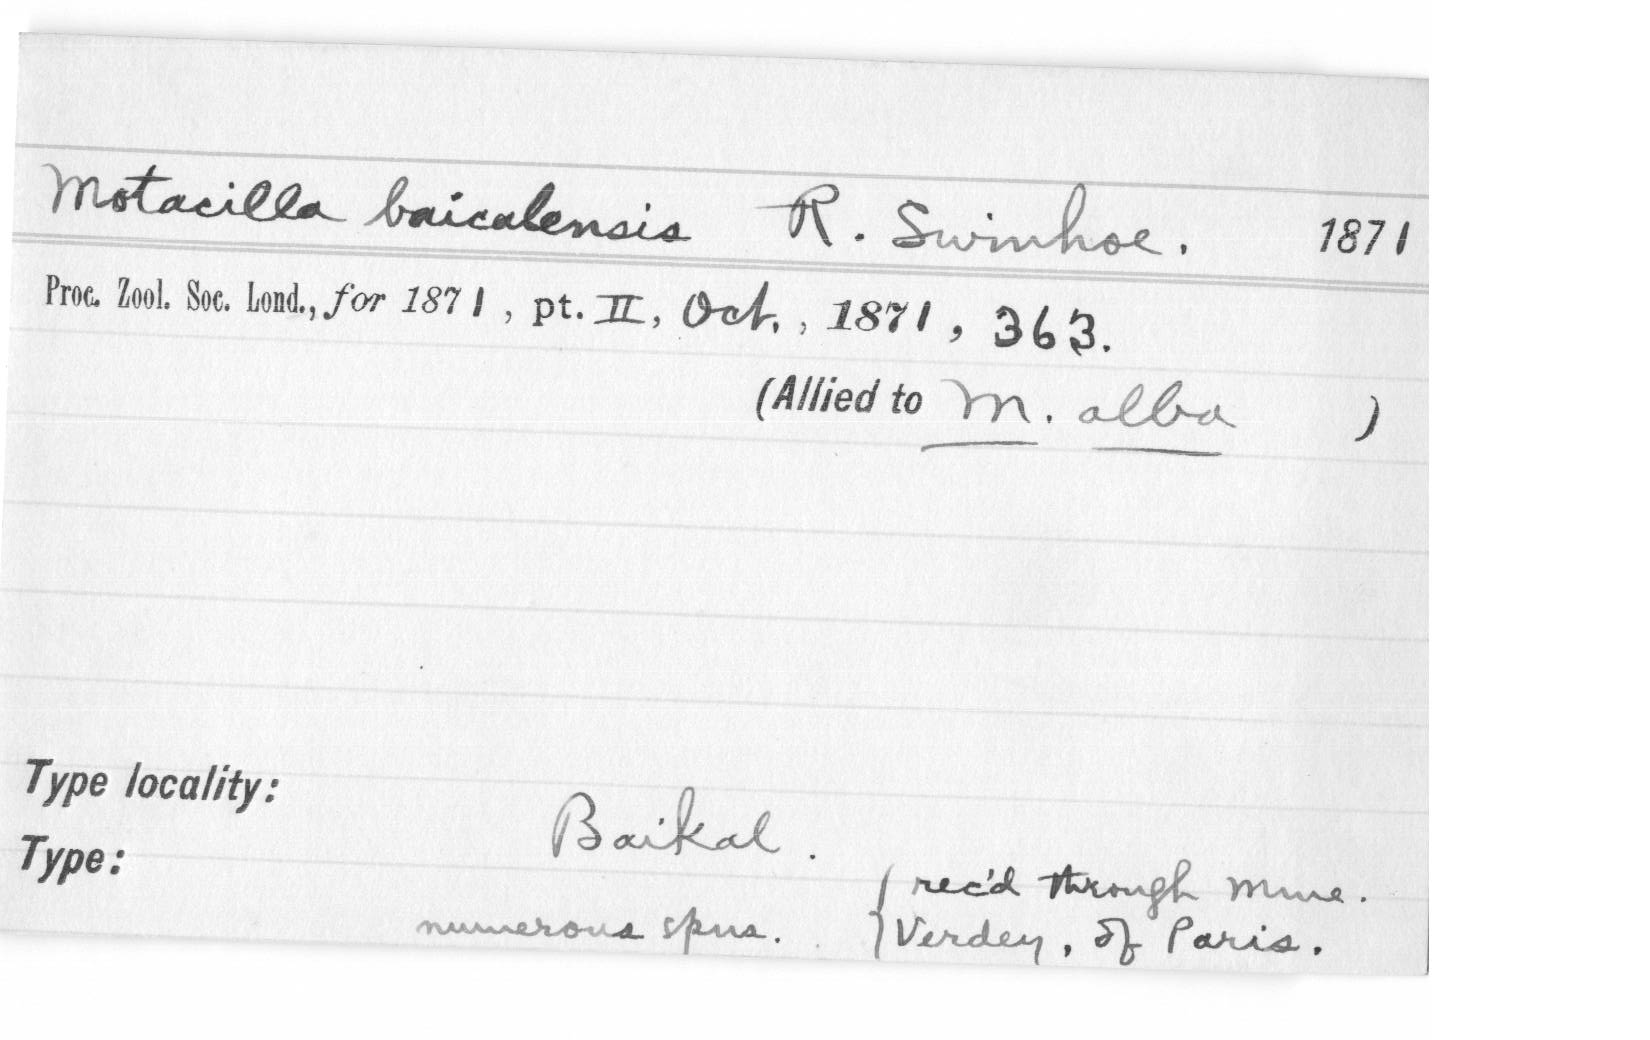 Motacilla baicalensis R. Swinhoe. 1871
Proc. Zool. Soc. Lond., for 1871, pt. II, Oct., 1871, 363.
(Allied to M. alba )
Type locality:
Baikal.
Type:
numerous spns. { rec'd through Mme.
Verdey, of Paris.